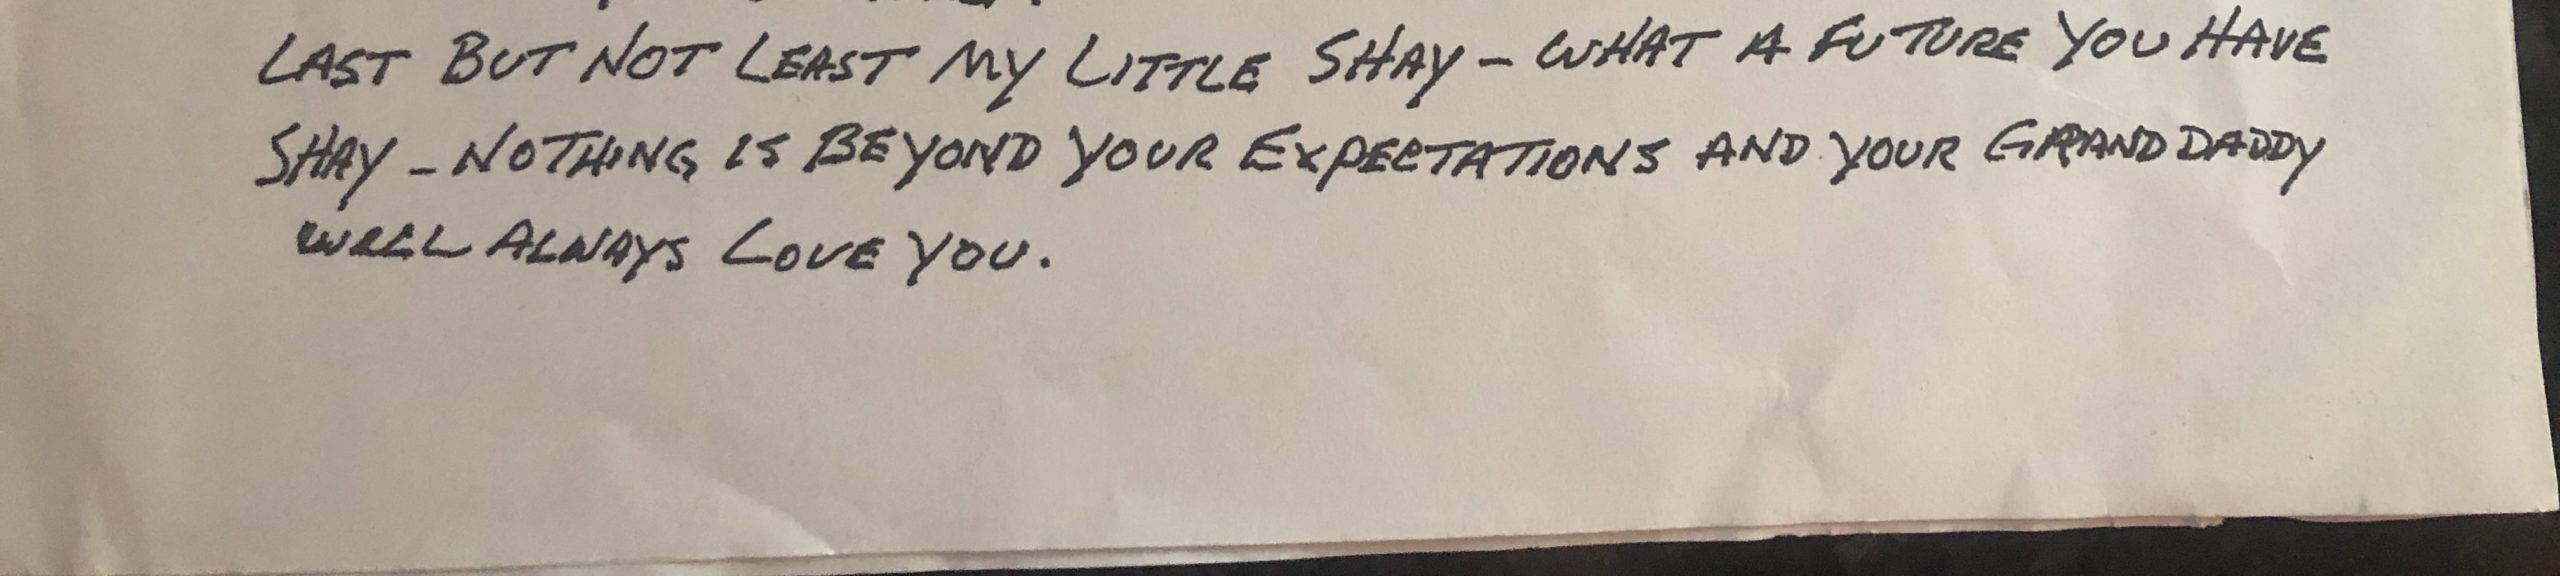 LAST BUT NOT LEAST MY LITTLE SHAY – WHAT A FUTURE YOU HAVE
SHAY – NOTHING IS BEYOND YOUR EXPECTATIONS AND YOUR GRAND DADDY
WILL ALWAYS LOVE YOU.